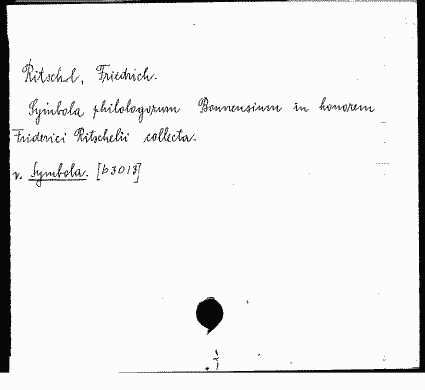 Ritschl, Friedrich.
Symbola philologorum Bonnensium in honorem
Friderici Ritschelii collecta.
v. Symbola. [b3013]